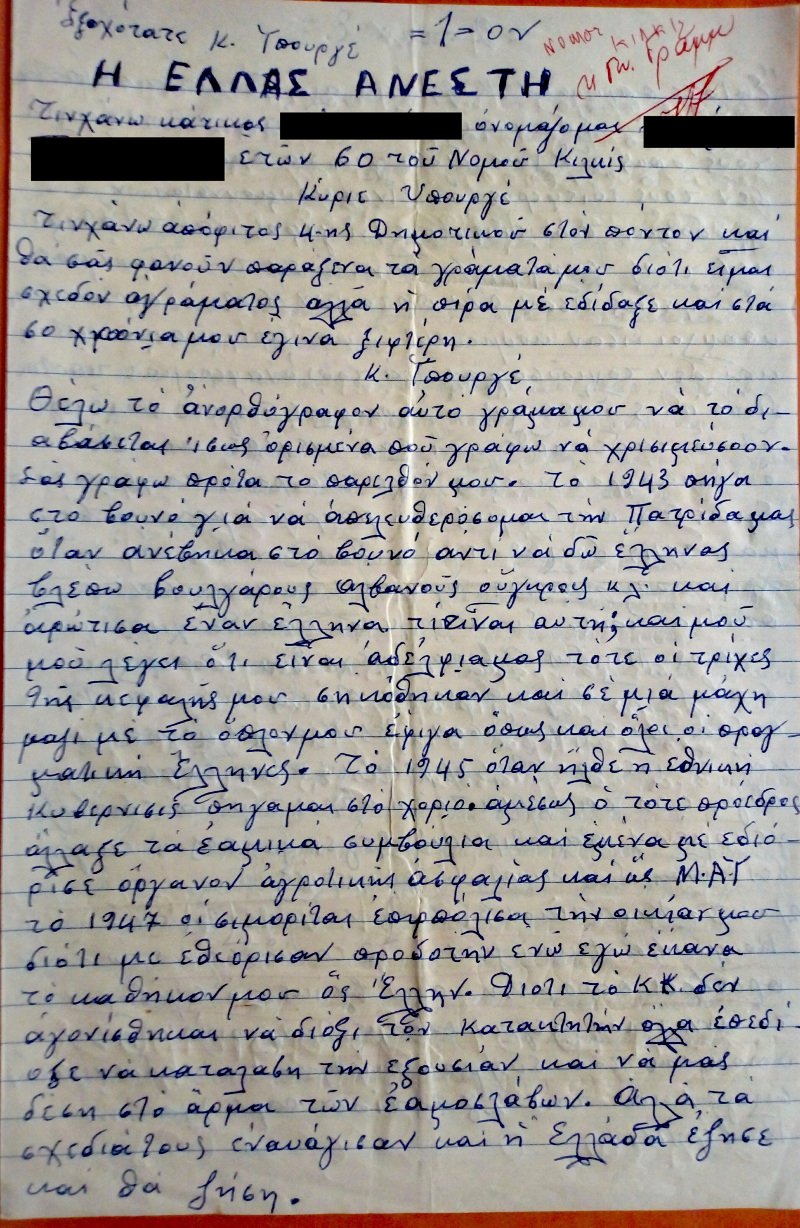 Εξοχότατε Κ. Υπουργέ =1=ον
Νομος Κιλκις
Η ΕΛΛΑΣ ΑΝΕΣΤΗ
Τινχάνω κάτικος ονομαζομαι
ετών 60 τοῦ Νομοῦ Κιλκίς
Κύριε Υπουργέ
Τινχάνω ἀπόφιτος 4-ης Δημοτικοῦ στόν πόντον καί
θα σᾶς φανοῦν παράξενα τά γράματά μου διότι είμαι
σχεδόν ἀγράματος αλλά ἡ πίρα μέ εδίδαξε και στά
60 χρόνια μου έγινα ξιφτέρη.
Κ. Υπουργέ
Θέλω τό ἀνορθόγραφον αὐτό γράμα μου νά τό δι-
αβάσεται ισως ὁρισμένα πού γράφω νά χρισιμεύσουν.
Σάς γράφω πρότα το παρελθόν μου. Τό 1943 πήγα
στο βουνό γιά νά ἀπελευθερόσομαι τήν Πατρίδα μας
ὅταν ανέβηκα στό βουνό αντί νά δῶ ἕλληνας
βλέπω βουλγάρους αλβανούς οὕγκρους κλ. και
ἀρώτισα έναν ἕλληνα τί είναι αὐτή; και μοῦ
μοῦ λέγει ὅτι εἶναι ἀδέλφια μας τότε οἱ τρίχες
τῆς κεφαλῆς μου σηκόθηκαν και σέ μιά μάχη
μαζι μέ τό όπλον μου έφιγα όπως και ὅλοι οἱ πραγ-
ματική Έλληνες. Τό 1945 όταν ήλθε ἡ εθνική
Κυβερνισις πηγαμαι στό χοριό ἀμέσως ὁ τότε πρόεδρος
άλλαξε τά ἐαμικά συμβούλια και ἐμένα μέ εδιό-
ρισε όργανον ἀγροτικής ἀσφαλίας και ὡς Μ.Α.Υ
τό 1947 οἱ σιμορίται ἐπιρπόλισα τήν οικίαν μου
διότι με ἐθεόρισαν προδοτήν ενώ εγώ έκανα
τό καθήκον μου ὅς Έλλην. Διοτι τό ΚΚ. δέν
ἀγονίσθηκαι νά διόξι τόν Κατακτητήν αλλα ἐπεδί-
οξε νά καταλαβη τήν εξουσίαν και νά μάς
δέση στό ἅρμα τῶν ἐαμοσλάβων. Αλλά τά
σχεδιά τους εναυάγισαν και ἡ Ελλάδα έζησε
και θά ζήση.